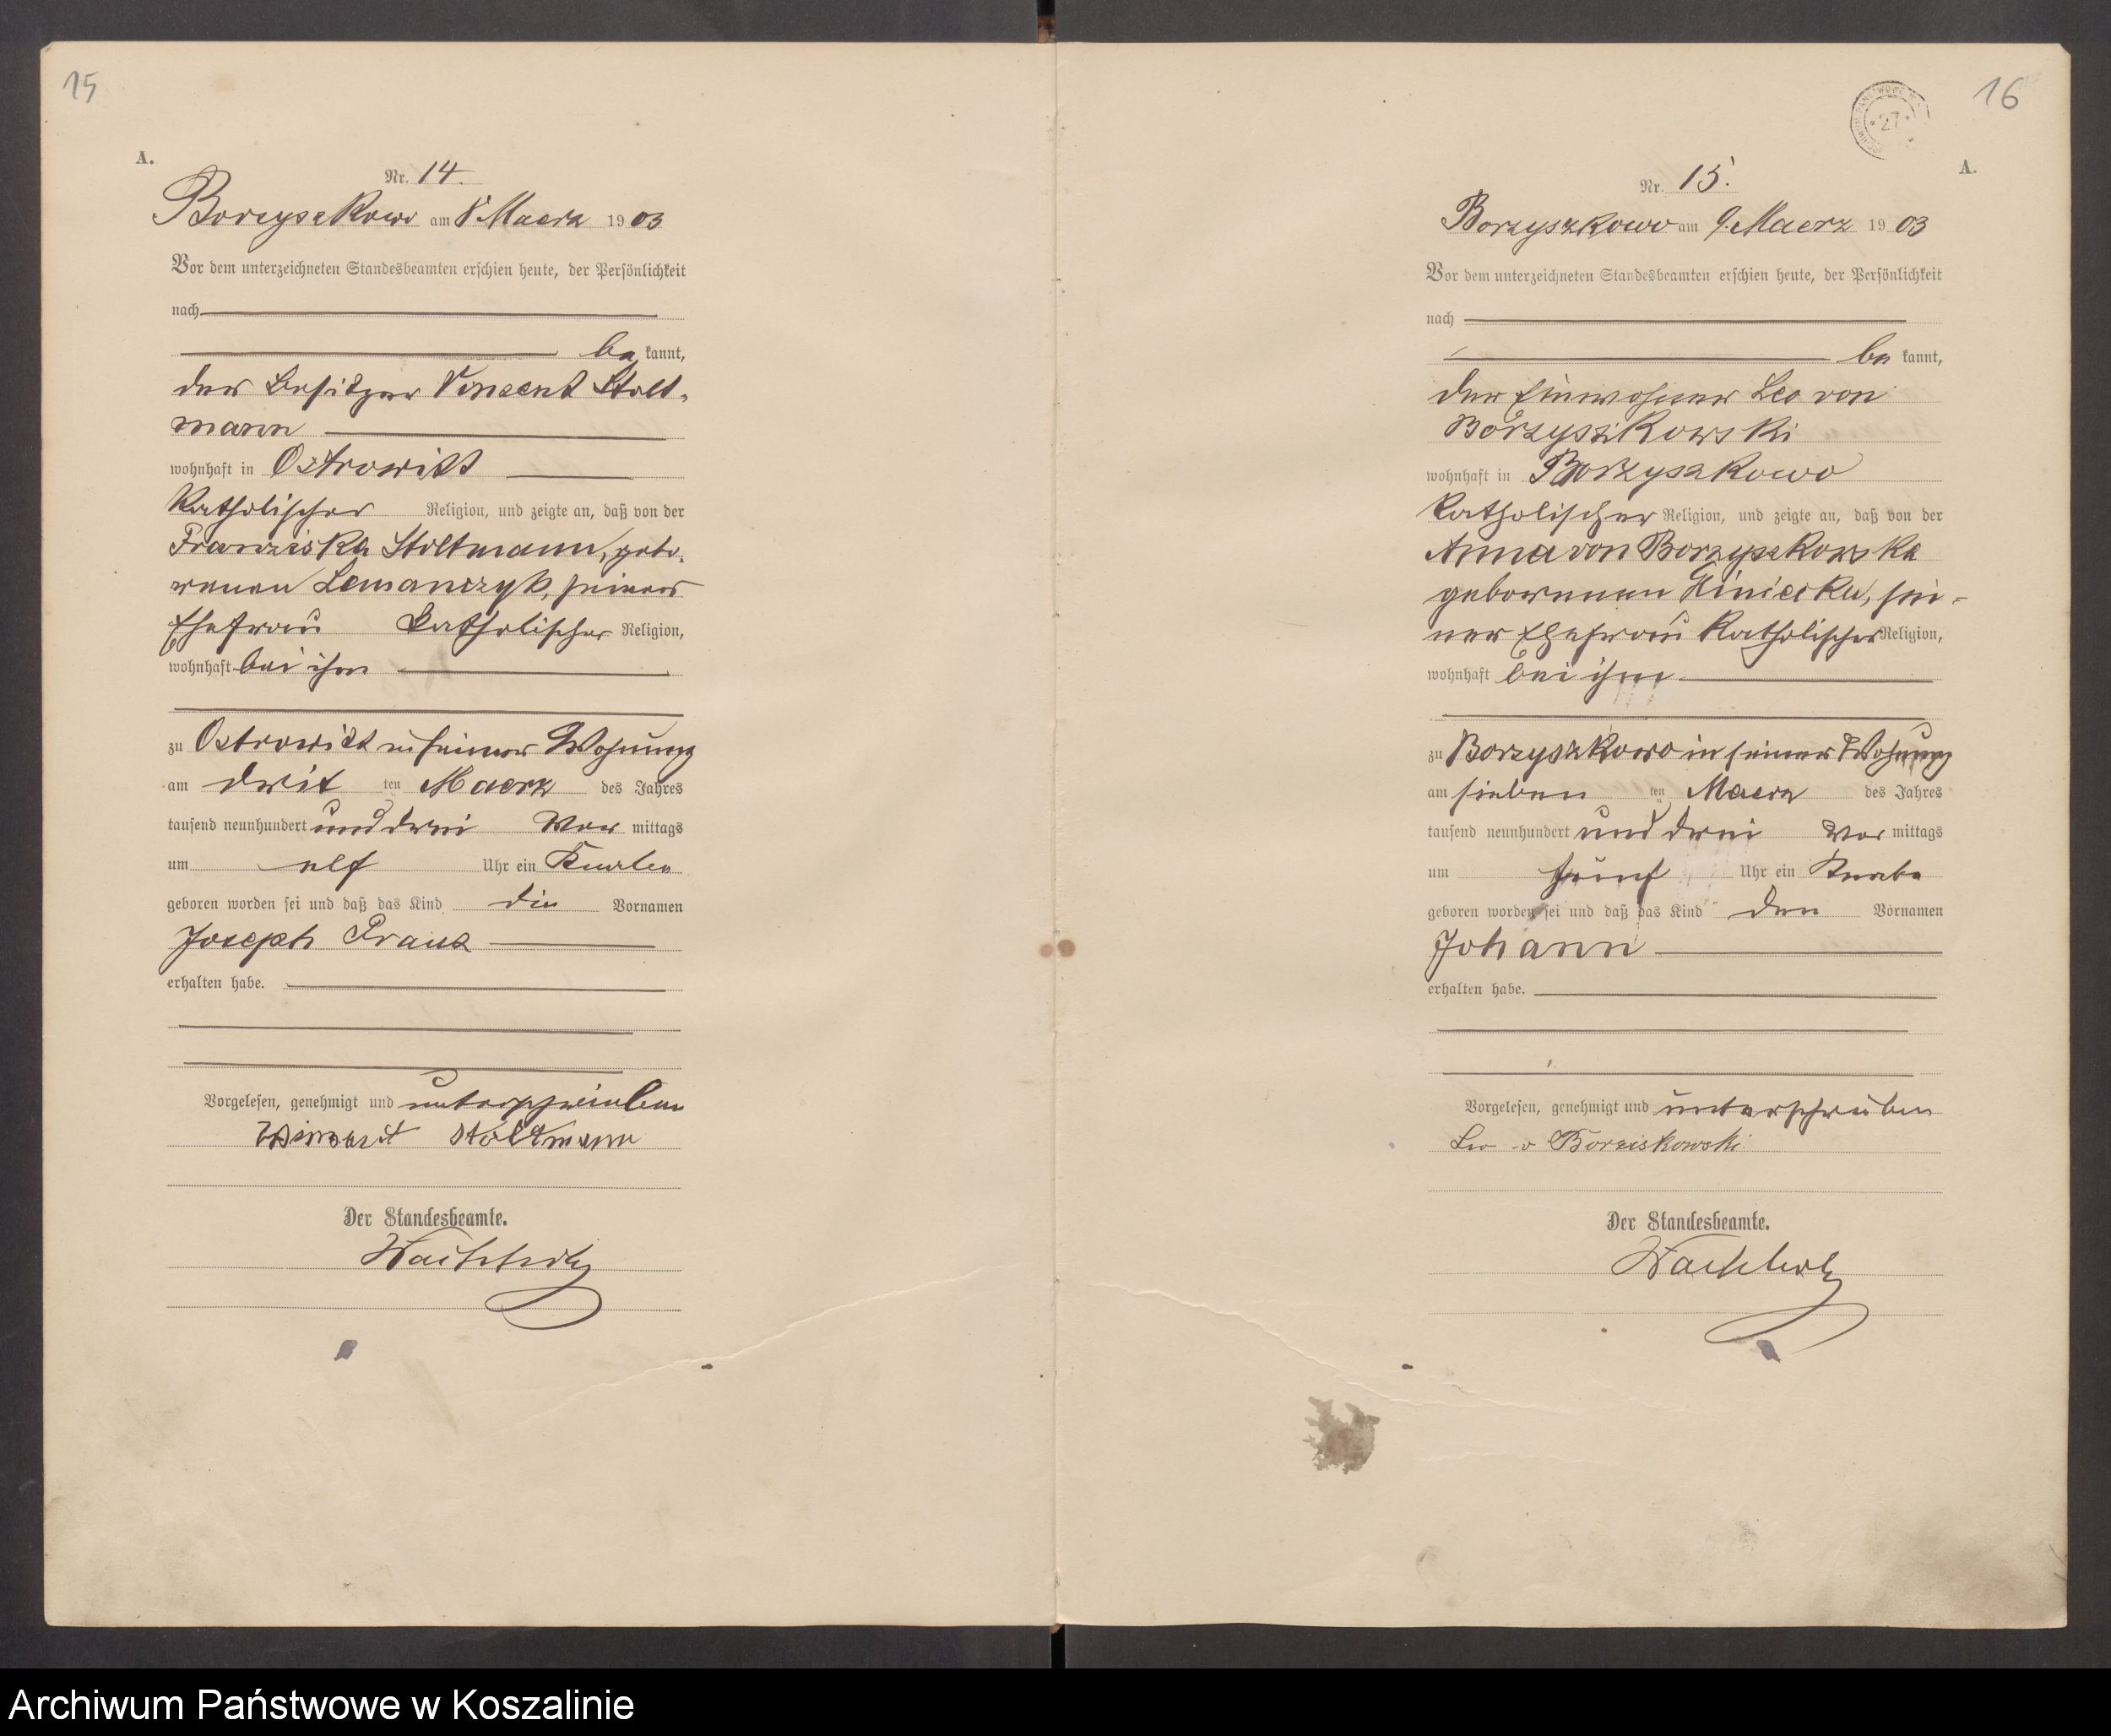 15
A.
Nr. 14.
Borzyszkowo am 8. Maerz 1903
Vor dem unterzeichneten Standesbeamten erschien heute, der Persönlichkeit
nach
be kannt,
der Besitzer Vincent Stolt-
mann
wohnhaft in Ostrowitt
katholischer Religion, und zeigte an, daß von der
Franziska Stoltmann, gebo-
renen Lemanczyk, seiner
Ehefrau katholischer Religion,
wohnhaft bei ihm
zu Ostrowitt in seiner Wohnung
am dritten Maerz des Jahres
tausend neunhundert und drei Vor mittags
um elf Uhr ein Knabe
geboren worden sei und daß das Kind die Vornamen
Joseph Franz
erhalten habe.
Vorgelesen, genehmigt und unterschrieben
Stoltmann
Der Standesbeamte.
16
A.
Nr. 15.
Borzyszkowo am 9. Maerz 1903
Vor dem unterzeichneten Standesbeamten erschien heute, der Persönlichkeit
nach
be kannt,
der Einwohner Leo von
Borzyszkowski
wohnhaft in Borzyszkowo
katholischer Religion, und zeigte an, daß von der
Anna von Borzyszkowska
geborenen, sei-
ner Ehefrau katholischer Religion,
wohnhaft bei ihm
zu Borzyszkowo in seiner Wohnung
am siebenten Maerz des Jahres
tausend neunhundert und drei Vor mittags
um fünf Uhr ein Knabe
geboren worden sei und daß das Kind den Vornamen
Johann
erhalten habe.
Vorgelesen, genehmigt und unterschrieben
Leo v Borziskowski
Der Standesbeamte.
Archiwum Państwowe w Koszalinie